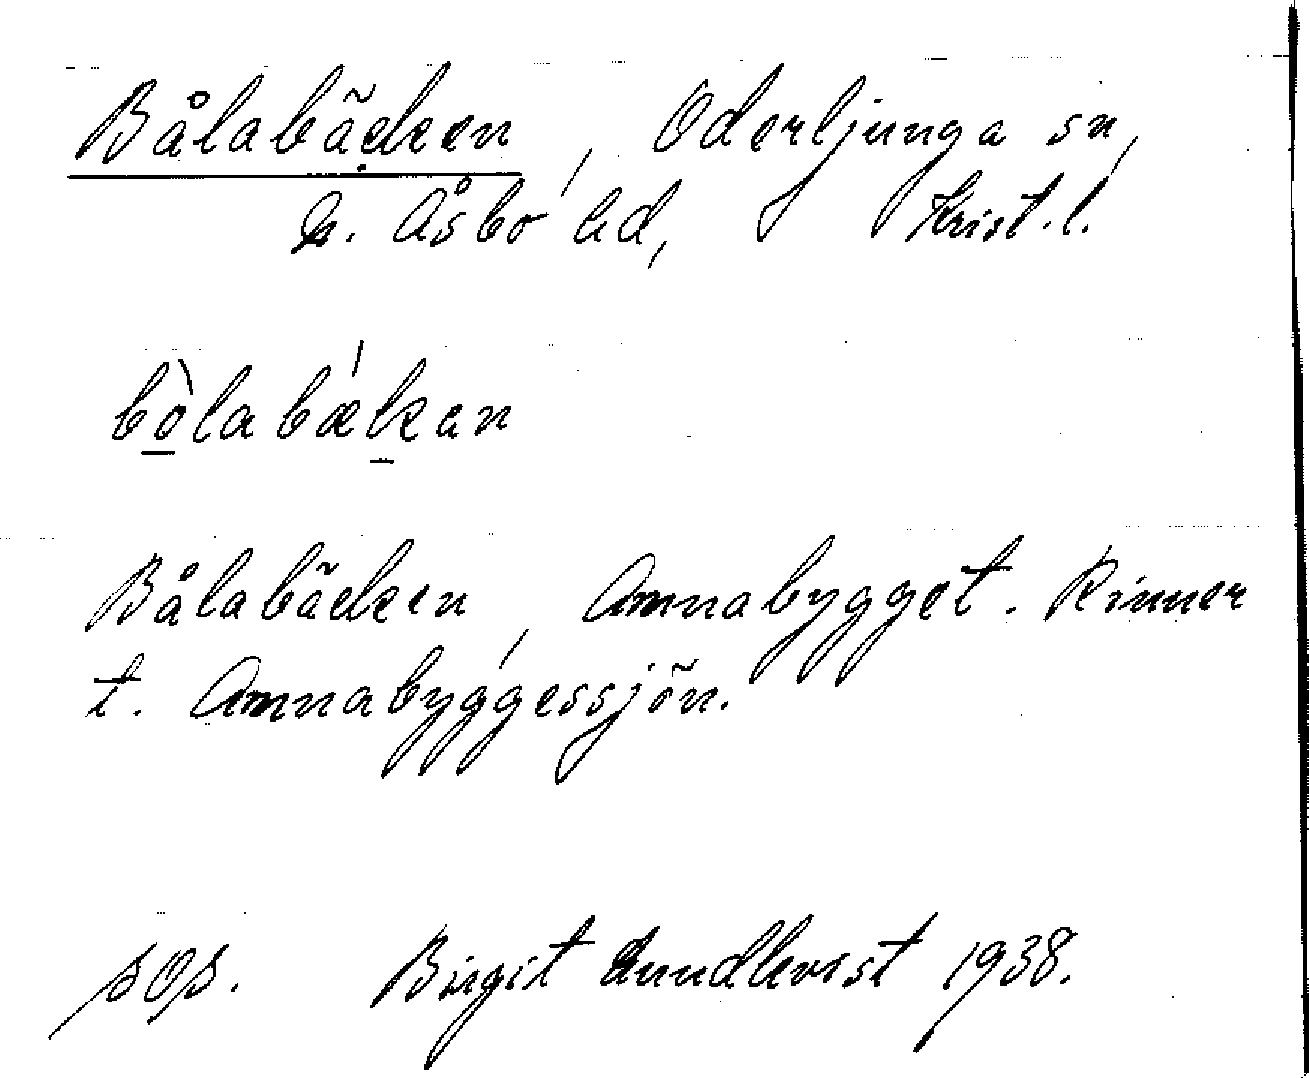 Bålabäcken, Oderljunga sn,
N. Åsbo hd, Krist. l.
bòlabǽkan
Bålabäcken, Annabygget. Rinner
t. Annabyggessjön.
sos. Birgit Lundkvist 1938.